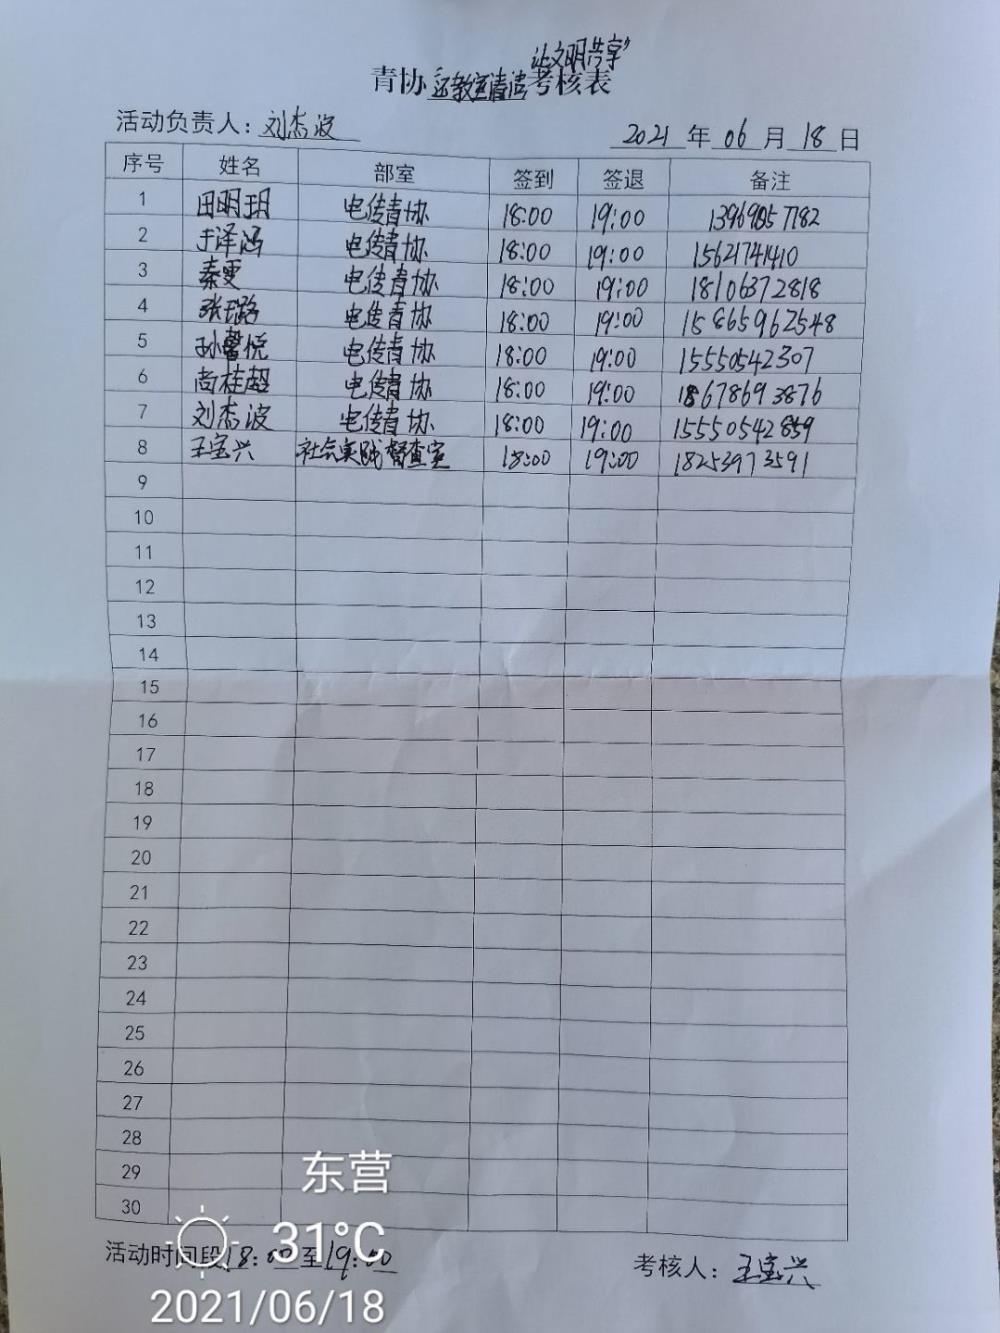 让文明共享"
青协"还教室清洁考核表
活动负责人：刘杰波 2021年06月18日
序号 姓名 部室 签到 签退 备注
1 田明玥 电传青协 18:00 19:00 13969057182
2 于泽涵 电传青协 18:00 19:00 15621741410
3 秦雯 电传青协 18:00 19:00 18106372818
4 张璐 电传青协 18:00 19:00 15865962548
5 孙馨悦 电传青协 18:00 19:00 15550542307
6 尚桂超 电传青协 18:00 19:00 18678693876
7 刘杰波 电传青协 18:00 19:00 15550542859
8 王宝兴 社会实践督查室 18:00 19:00 18253973591
9
10
11
12
13
14
15
16
17
18
19
20
21
22
23
24
25
26
27
28
29
30
东营
31°C
活动时间段18:00至19:00 考核人：王宝兴
2021/06/18